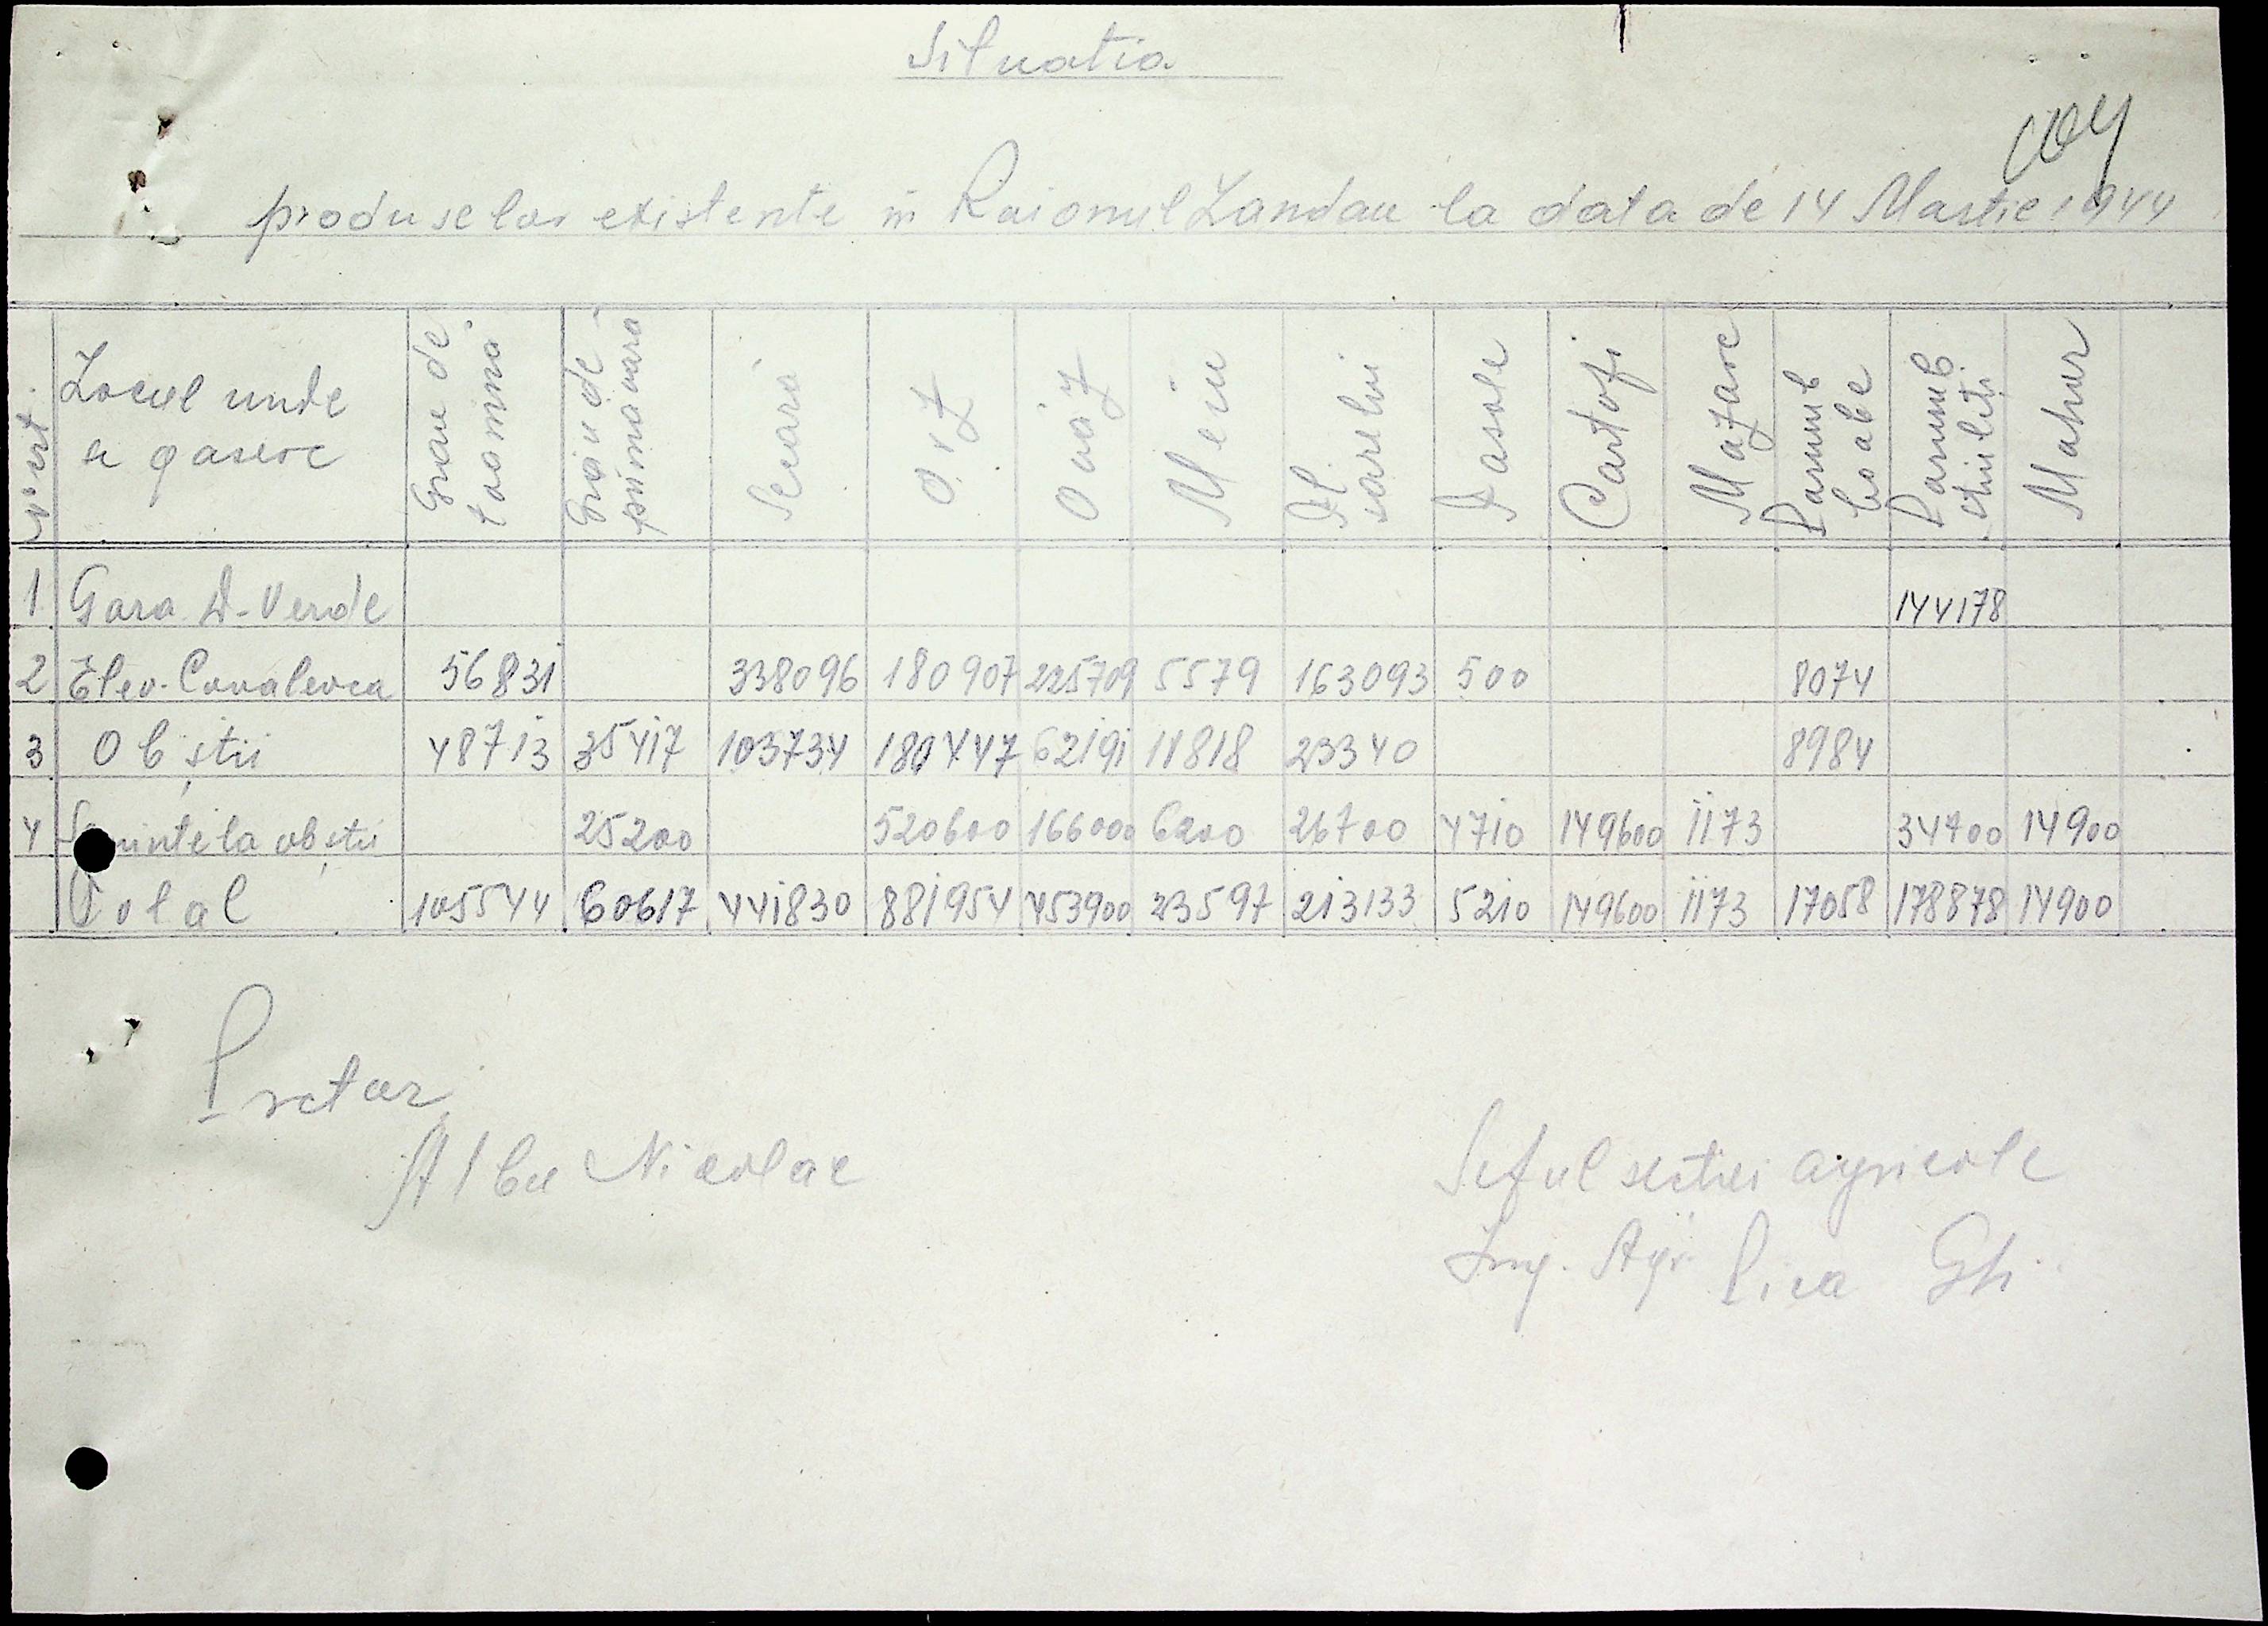 Situatia
104
produselor existente in Raionul Landau la data de 14 Martie 1944
Nº crt. Locul unde se gasesc Grau de toamna Grau de primavara Secara Orz Ovaz Meiu Fl. soarelui Fasole Cartofi Mazare Porumb boabe Porumb stiuleti Mahar
1 Gara D-Verde 144178
2 Elev. Covaleoca 56831 338096 180907 225709 5579 163093 500 8074
3 Obștii 48713 35417 103734 180447 62191 11818 23340 8984
4 la obștii 25200 520600 166000 6200 26700 4710 149600 1173 34700 14900
Total 105544 60617 441830 881954 453900 23597 213133 5210 149600 1173 17058 178878 14900
Pretor,
Albu Nicolae
Seful sectiei agricole
Ing. Agr. Pica Gh.